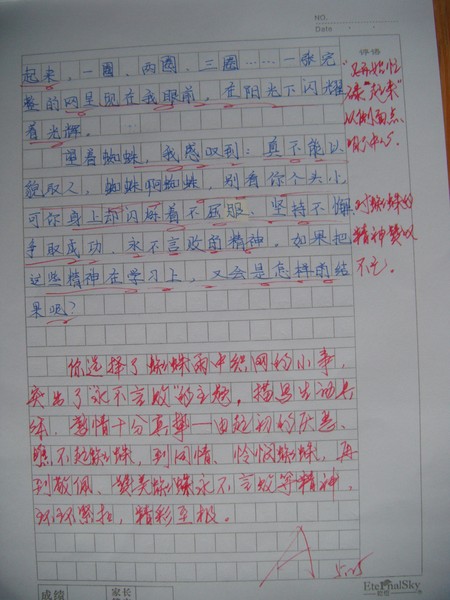 NO.
Date
评语
起来，一圈、两圈、三圈……一张完
整的网呈现在我眼前，在阳光下闪耀
着光辉。
望着蜘蛛，我感叹到：真不能以
貌取人，蜘蛛啊蜘蛛，别看你个头小，
可你身上却闪烁着不屈服、坚持不懈、
争取成功、永不言败的精神。如果把
这些精神在学习上，又会是怎样的结
果呢？
对蜘蛛的
精神赞叹
不已。
你选择了蜘蛛雨中织网的小事，
突出了“永不言败”的主题。描写生动具
体，感情十分真挚——由起初的厌恶、
瞧不起蜘蛛，到同情、怜悯蜘蛛，再
到敬佩、赞美蜘蛛永不言败等精神，
环环紧扣，精彩至极。
5.25
成绩
家长
EternalSky